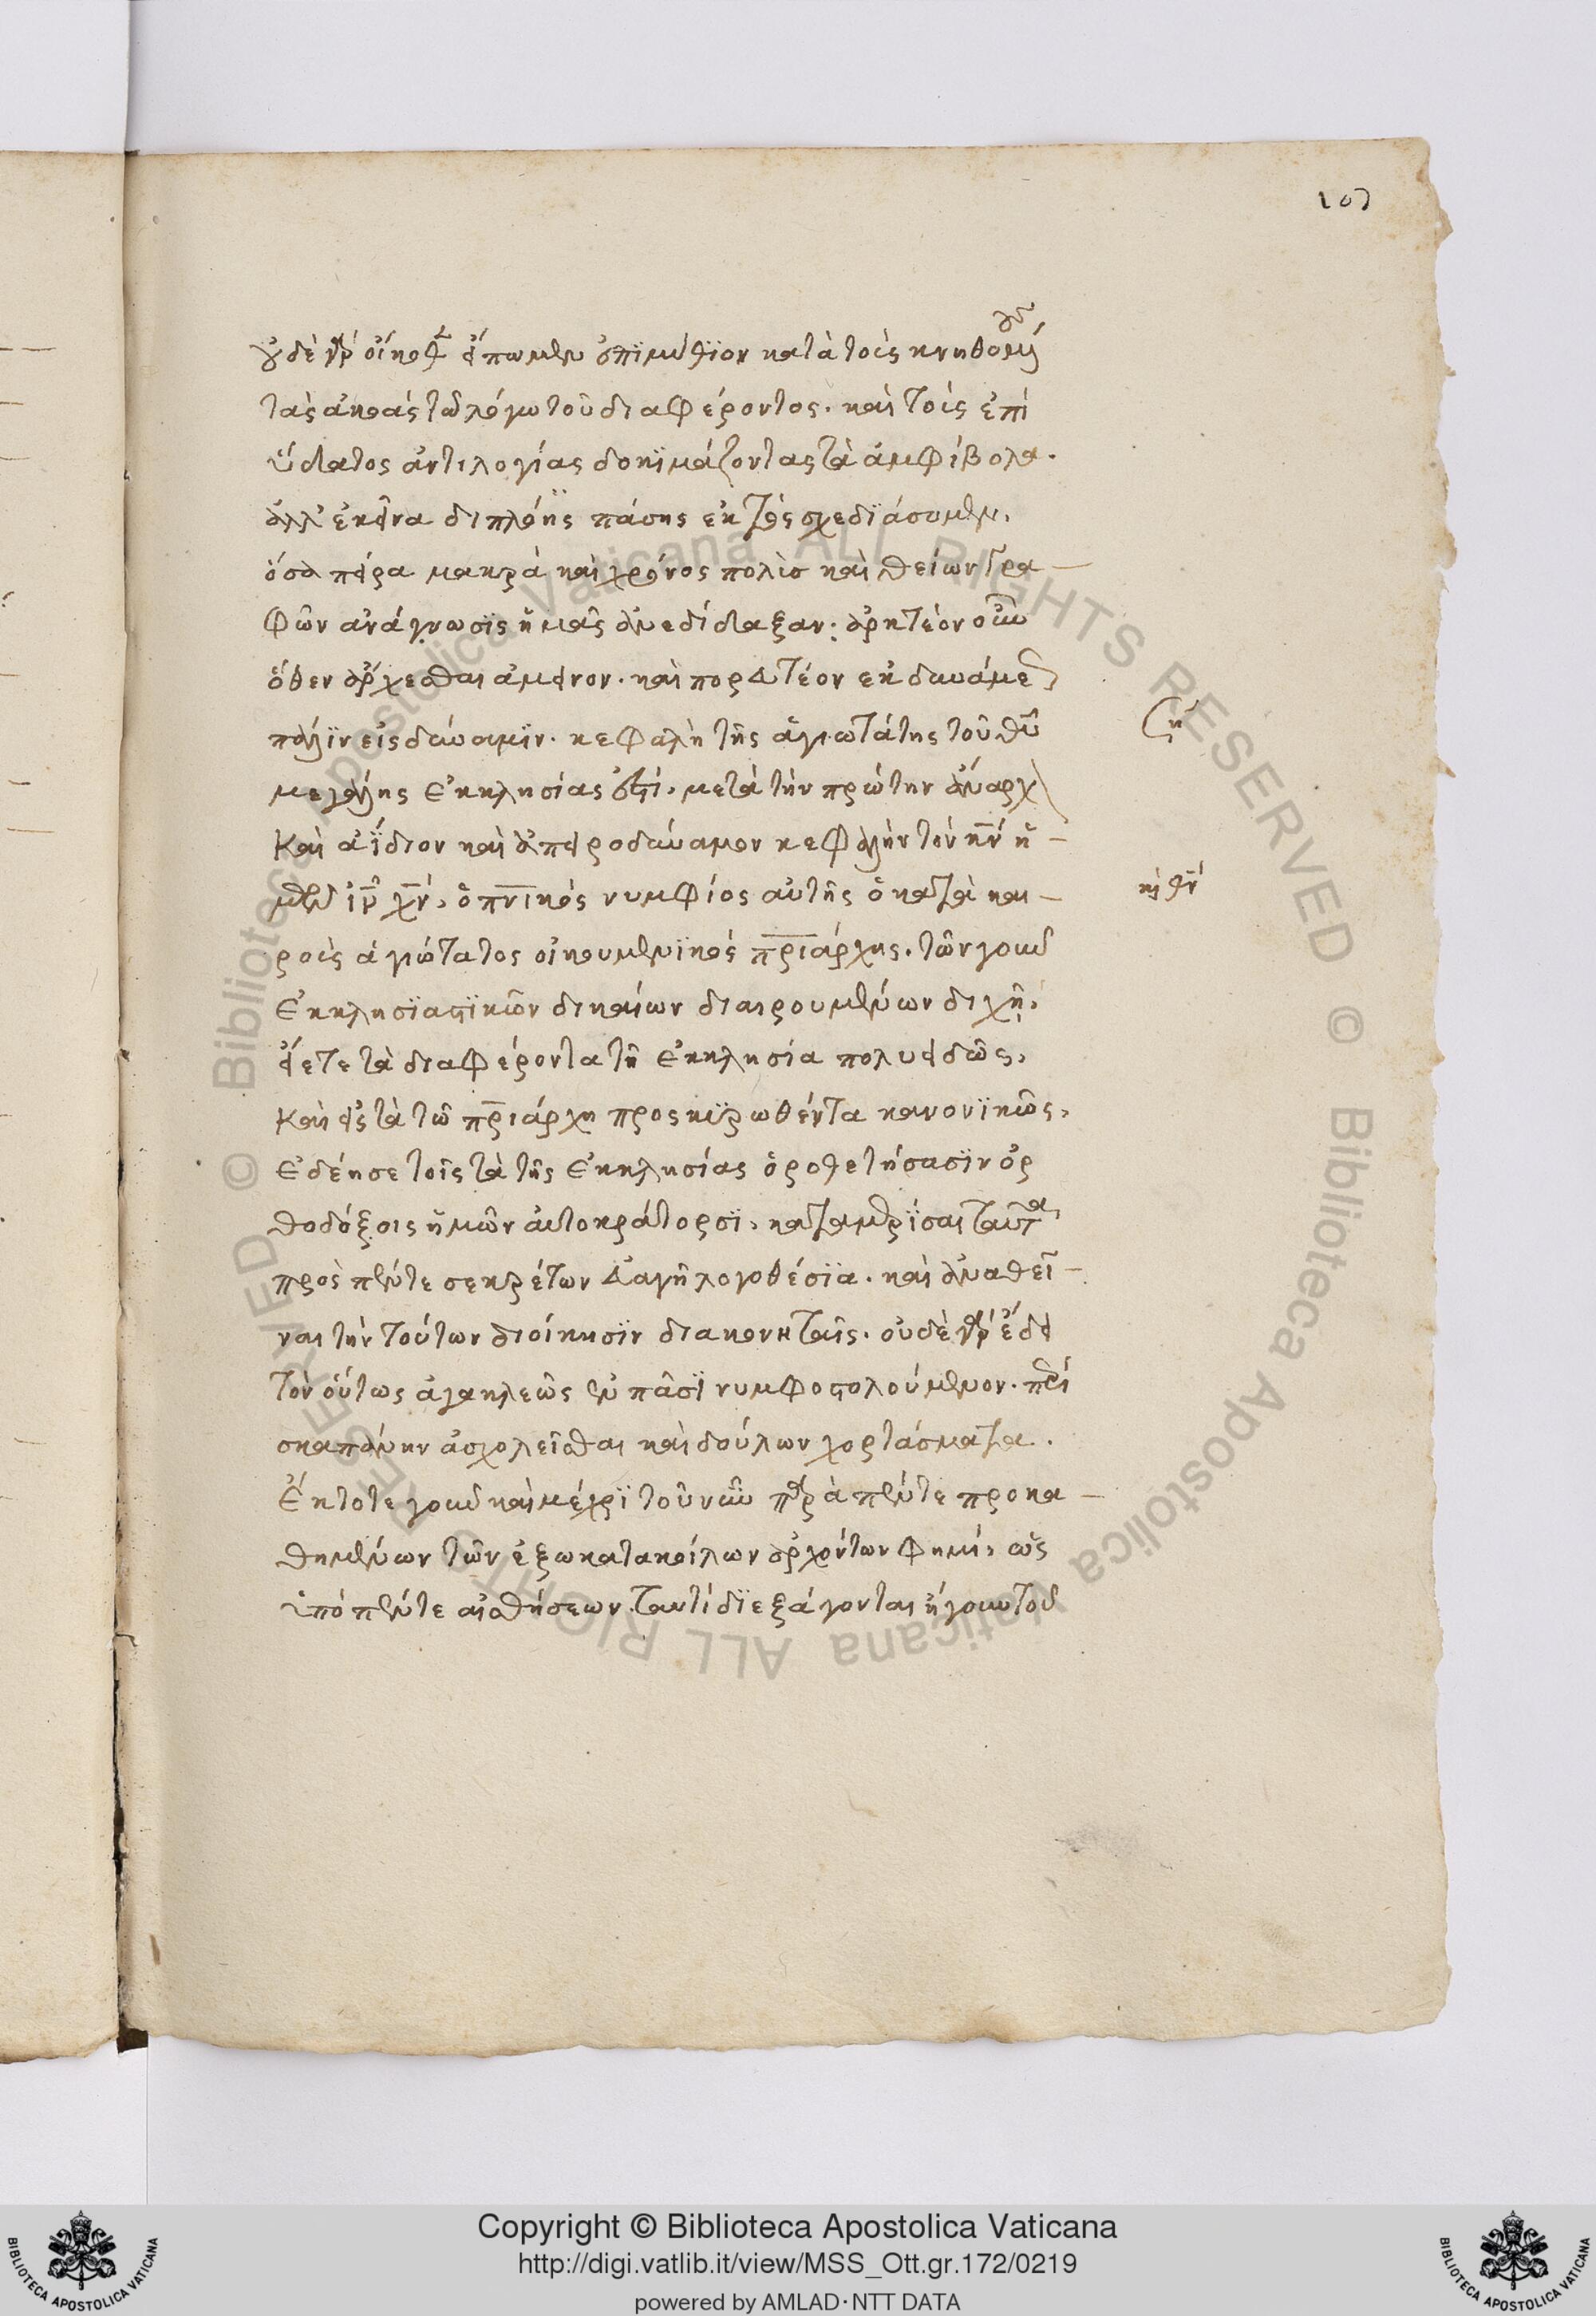 107
οὐδὲ γὰρ οἴκοθεν εἴπωμεν ἐπιμύθϊον κατὰ τοὺς κνηθομένους
τὰς ἀκοὰς τῶ λόγω τοῦ διαφέροντος. καὶ τοὺς ἐπὶ
ὕδατος ἀντιλογίας δοκϊμάζοντας τὰ ἀμφίβολα.
ἀλλ' ἐκεῖνα διπλόης πάσης ἐκτὸς σχεδϊάσομεν,
ὅσα πεῖρα μακρὰ καὶ χρόνος πολὺς καὶ θείων γρα
φῶν ἀνάγνωσϊς ἡμᾶς ἀνεδίδαξαν. ἀρκτέον οὖν
ὅθεν ἄρχεσθαι ἄμεινον. καὶ πορευτέον ἐκ δυνάμεως
πάλϊν εἰς δύναμϊν. κεφαλὴ τῆς ἁγιωτάτης τοῦ θυ
μεγάλης ἐκκλησίας ἐστί. μετὰ τὴν πρώτην ἄναρχον
καὶ ἀΐδιον καὶ ἀπειροδύναμον κεφαλὴν τὸν κν ἡ
μῶν ιν χν, ὁ πνικὸς νυμφίος αὐτῆς ὁ κατὰ και
ροὺς ἁγιώτατος οἰκουμενϊκὸς πριάρχης. τῶν γοῦν
ἐκκλησϊαστϊκῶν δικαίων διαιρουμένων διχῆ,
εἴς τε τὰ διαφέροντα τῆ ἐκκλησία πολυειδῶς,
καὶ εἰς τὰ τῶ πριάρχη προσκϋρωθέντα κανονϊκῶς,
ἐδέησε τοῖς τὰ τῆς ἐκκλησίας ὁροθετήσασϊν ὀρ
θοδόξοις ἡμῶν αὐτοκράτορσϊ, καταμερίσαι ταῦτα
πρὸς πέντε σεκρέτων εὐαγῆ λογοθέσϊα. καὶ ἀναθεῖ
ναι τὴν τούτων διοίκησϊν διακονηταῖς. οὐδὲ γὰρ ἔδει
τὸν οὕτως ἀγακλεῶς ἐν πᾶσϊ νυμφοστολούμενον. περὶ
σκαπάνην ἀσχολεῖσθαι καὶ δούλων χορτάσματα.
ἔκτοτε γοῦν καὶ μέχρϊ τοῦ νῦν παρὰ πέντε προκα
θημένων τῶν ἐξωκατακοίλων ἀρχόντων φημὶ, ὡς
ὑπὸ πέντε αἰσθήσεων. ταυτὶ δϊεξάγονται ἤγουν τοῦ
Copyright © Biblioteca Apostolica Vaticana
http://digi.vatlib.it/view/MSS_Ott.gr.172/0219
powered by AMLAD·NTT DATA